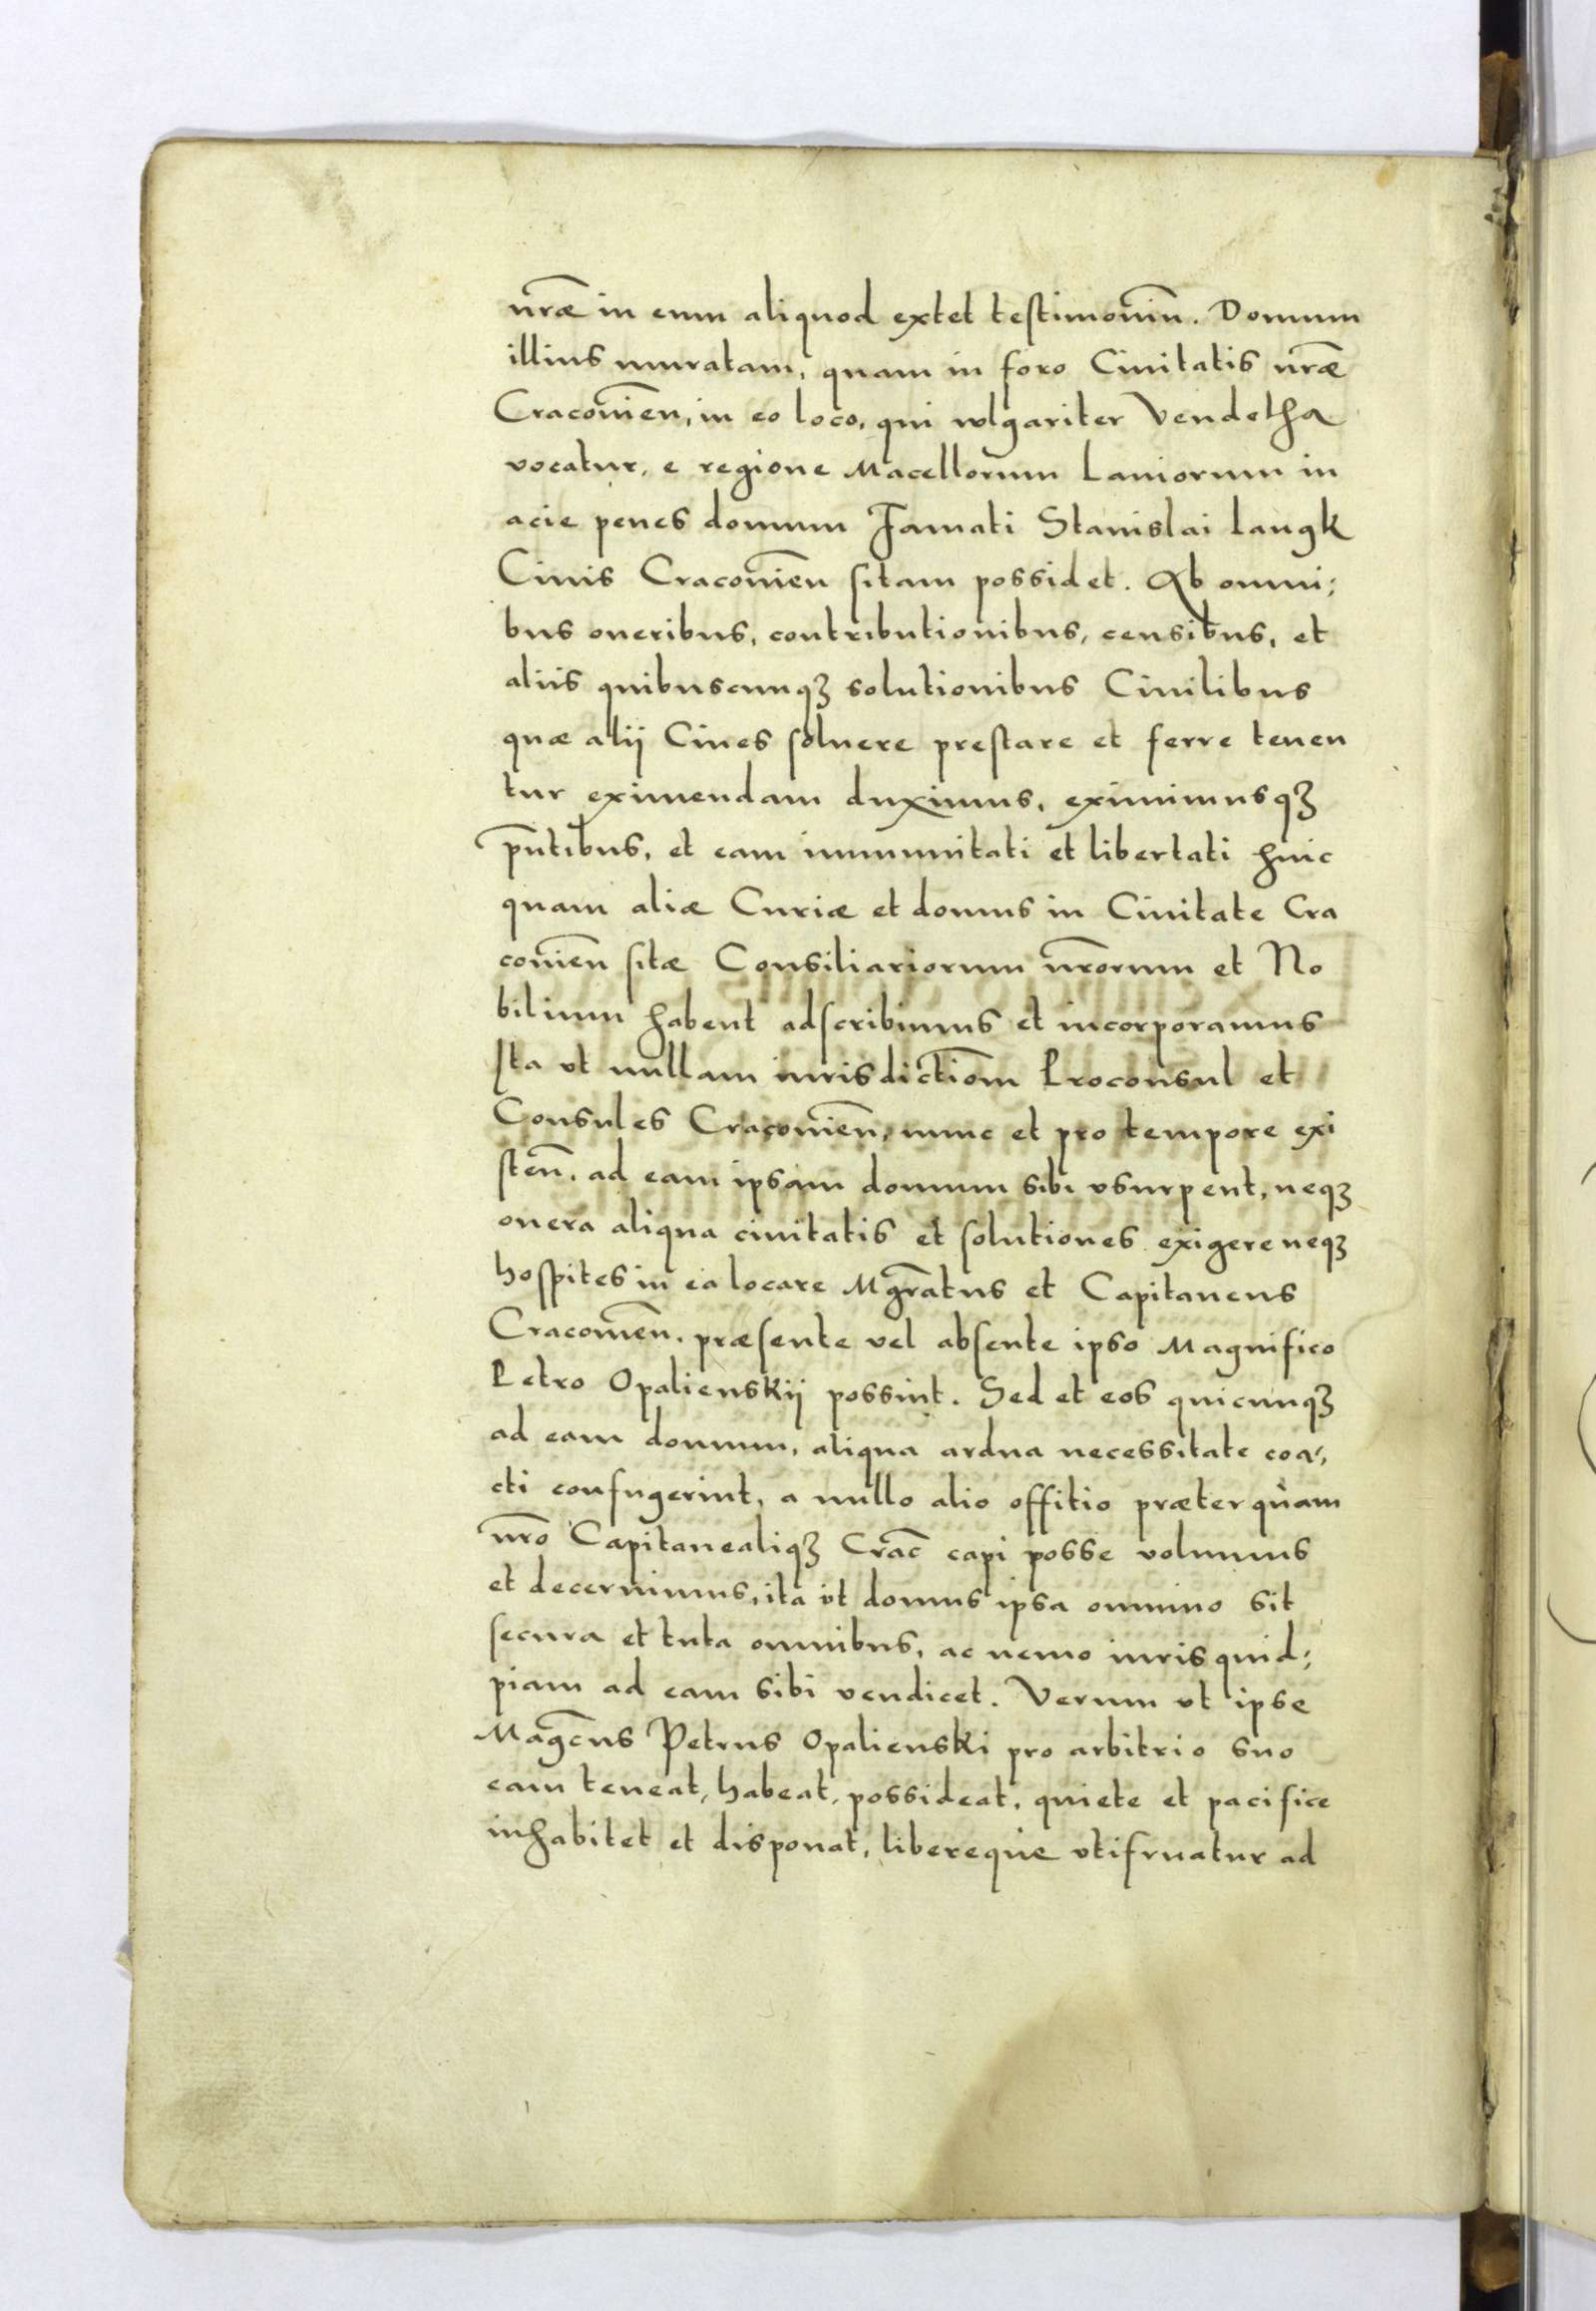 nr̃æ in eum aliquod extet testimoniũ. Domum
illius muratam, quam in foro Ciuitatis nr̃æ
Cracouieñ, in eo loco, qui wlgariter Vendetha
vocatur, e regione Macellorum Laniorum in
acie penes domum Famati Stanislai Langk
Ciuis Cracouieñ sitam possidet. Ab omni;
bus oneribus, contributionibus, censibus, et
aliis quibuscunqꝫ solutionibus Ciuilibus
quæ alij Ciues soluere prestare et ferre tenen
tur eximendam duximus, eximimusqꝫ
p̃ntibus, et eam immunitati et libertati huic
quam aliæ Curiæ et domus in Ciuitate Cra
couieñ sitæ Consiliariorum nr̃orum et No
bilium habent adscribimus et incorporamus
Ita vt nullam iurisdictiom̃ Proconsul et
Consules Cracouieñ, nunc et pro tempore exi
steñ, ad eam ipsam domum sibi vsurpent, neqꝫ
onera aliqua ciuitatis et solutiones exigere neqꝫ
hospites in ea locare Mgr̃atus et Capitaneus
Cracouieñ. præsente vel absente ipso Magnifico
Petro Opalienskij possint. Sed et eos quicunqꝫ
ad eam domum, aliqua ardua necessitate coa,
cti confugerint, a nullo alio offitio præterquàm
nr̃o Capitanealiqꝫ Crac̃ capi posse volumus
et decernimus, ita vt domus ipsa omnino sit
secura et tuta omnibus, ac nemo iuris quid;
piam ad eam sibi vendicet. Verum vt ipse
Magc̃us Petrus Opalienski pro arbitrio suo
eam teneat, habeat, possideat, quiete et pacifice
inhabitet et disponat, libereque vtifruatur ad